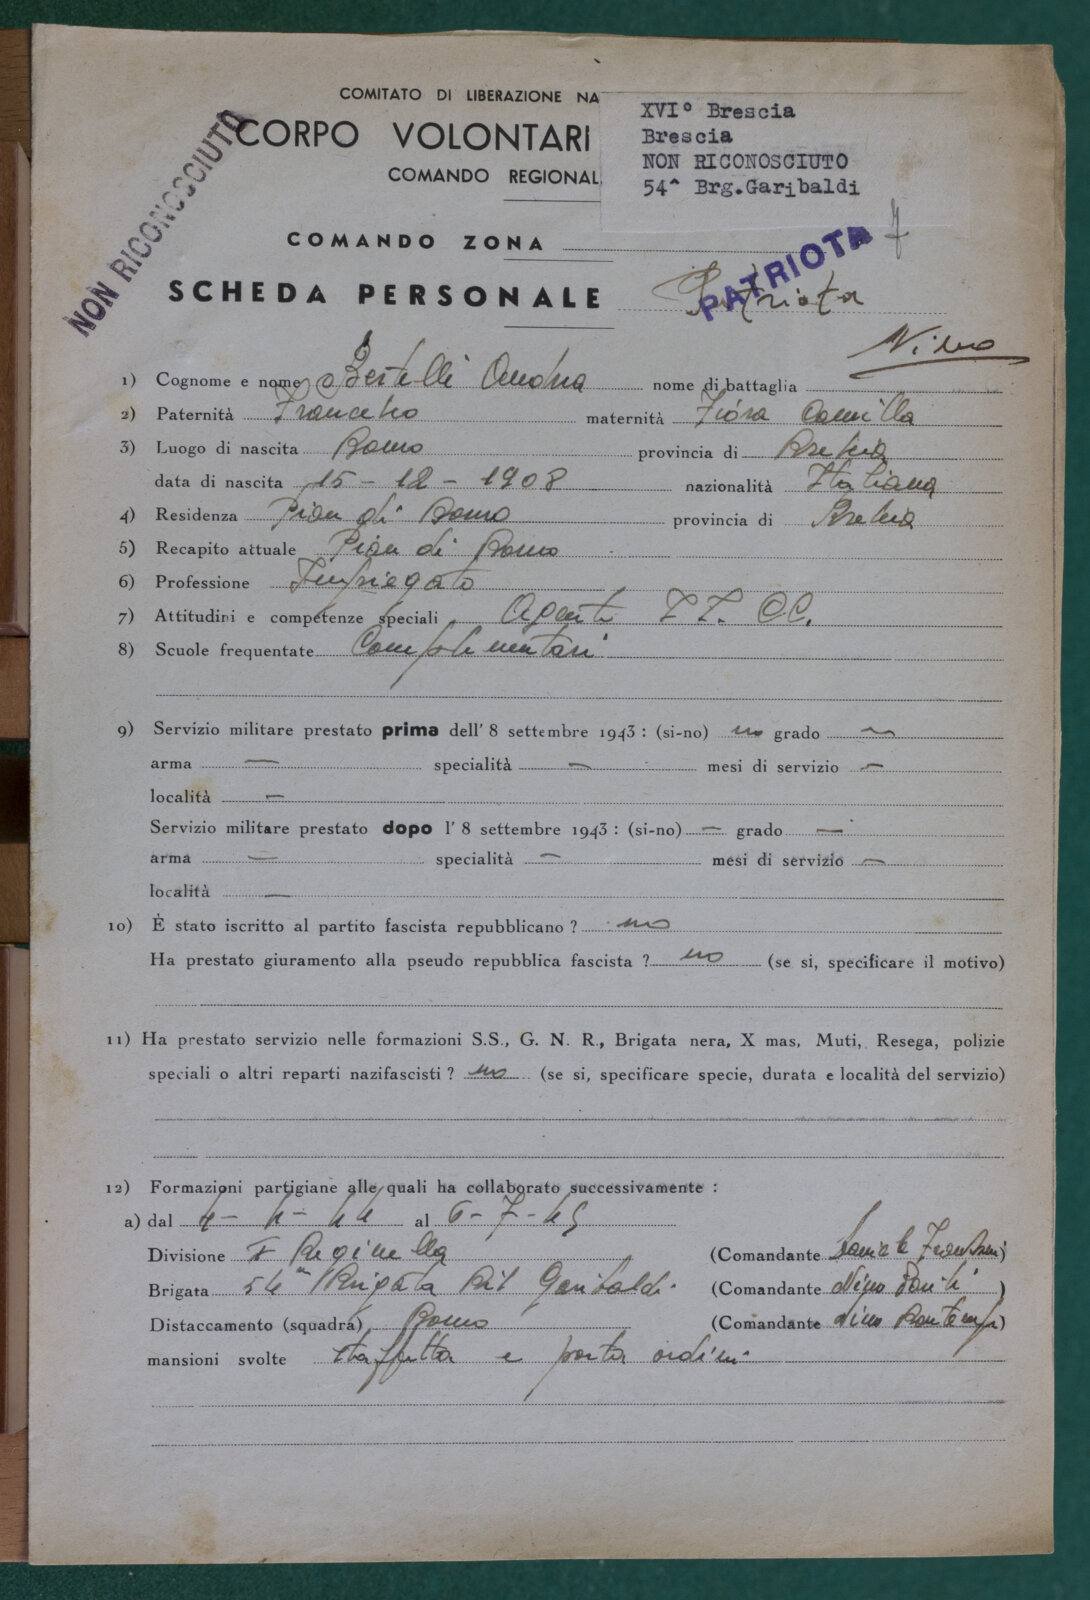 COMITATO DI LIBERAZIONE NA
CORPO VOLONTARI
COMANDO REGIONAL
XVI° Brescia
Brescia
NON RICONOSCIUTO
54^ Brg.Garibaldi
NON RICONOSCIUTO
COMANDO ZONA
7
PATRIOTA
SCHEDA PERSONALE Patriota
1) Cognome e nome Bertelli Andrea nome di battaglia
2) Paternità Francesco maternità Fiora Camilla
3) Luogo di nascita Borno provincia di Brescia
data di nascita 15 - 12 - 1908 nazionalità Italiana
4) Residenza Pian di Borno provincia di Brescia
5) Recapito attuale Pian di Borno
6) Professione Impiegato
7) Attitudini e competenze speciali Agente II. CC.
8) Scuole frequentate Complementari
9) Servizio militare prestato prima dell' 8 settembre 1943 : (si-no) no grado —
arma — specialità — mesi di servizio —
località —
Servizio militare prestato dopo l' 8 settembre 1943 : (si-no) — grado —
arma — specialità — mesi di servizio —
località —
10) È stato iscritto al partito fascista repubblicano ? no
Ha prestato giuramento alla pseudo repubblica fascista ? no (se si, specificare il motivo)
11) Ha prestato servizio nelle formazioni S.S., G. N. R., Brigata nera, X mas, Muti, Resega, polizie
speciali o altri reparti nazifascisti ? no (se si, specificare specie, durata e località del servizio)
12) Formazioni partigiane alle quali ha collaborato successivamente :
a) dal 4 - 4 - 44 al 6 - 7 - 45
Divisione (Comandante )
Brigata 54ª Brigata Garibaldi (Comandante Nino )
Distaccamento (squadra) Borno (Comandante Nino )
mansioni svolte staffetta e porta ordini